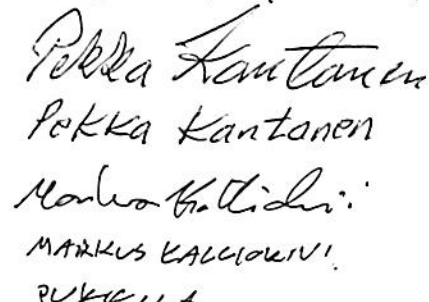 Pekka Kantanen
Pekka Kantanen
Markus Kalliokivi
MARKUS KALLIOKIVI
PUKKILA